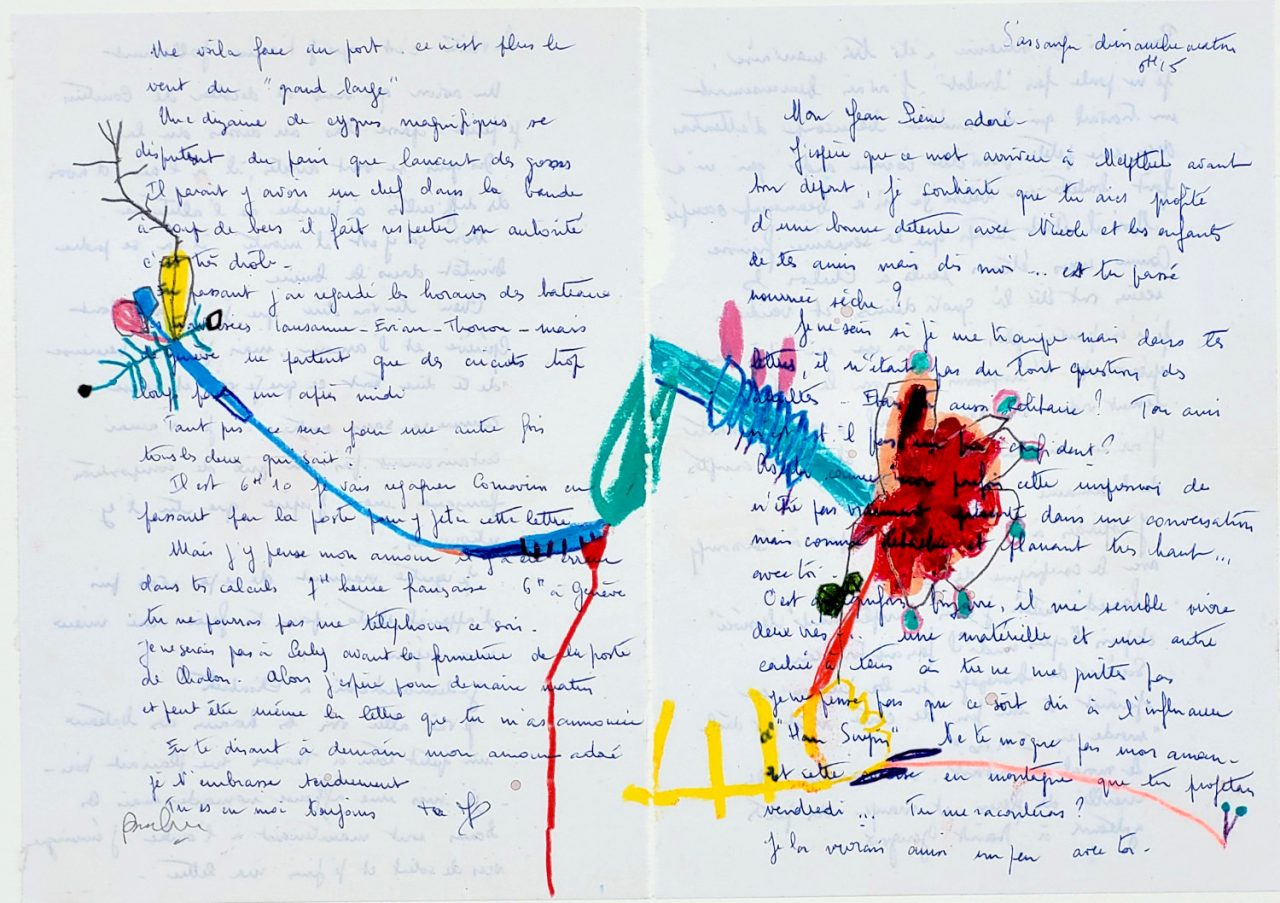 Me voilà face au port. ce n'est plus le
vent du "grand large"
Une dizaine de cygnes magnifiques se
disputent du pain que lancent des gosses
Il parait y avoir un chef dans la bande
à coup de becs il fait respecter son autorité
c'est très drôle.
passant j'ai regardé les horaires des bateaux
Lausanne - Evian - Thonon - mais
ne partent que des circuits trop
longs pour un après midi
Tant pis ce sera pour une autre fois
tous les deux qui sait ?
Il est 6H10 je vais regagner Cornavin en
passant par la poste pour y jeter cette lettre
Mais j'y pense mon amour il y a
dans tes calculs 1H heure française 6H à Genève
tu ne pourras pas me téléphoner ce soir.
Je ne serais pas à avant la fermeture de la poste
de Chalon. Alors j'espère pour demain matin
et peut être même la lettre que tu m'as annoncée
En te disant à demain mon amour adoré
je t'embrasse tendrement
Tu es en moi toujours ta
dimanche
6H15
Mon Jean Pierre adoré -
J'espère que ce mot arrivera à avant
ton départ, je souhaite que tu aies profité
d'une bonne détente avec Nicole et les enfants
de tes amis mais dis moi ... est tu passé
journée sèche ?
Je ne sais si je me trompe mais dans tes
lettres, il n'était pas du tout question des
aussi solitaire ? Ton ami
n'est il pas un confident ?
cette impression de
n'être pas vraiment présente dans une conversation
mais comme détachée et planant très haut...
avec toi -
C'est parfois bizarre, il me semble vivre
deux vies ... une matérielle et une autre
cachée à tous où tu ne me quittes pas
je ne pense pas que ce soit dû à l'influence
d' Ne te moque pas mon amour -
et cette en montagne que tu projetais
vendredi ... Tu me raconteras ?
Je la vivrais ainsi un peu avec toi -